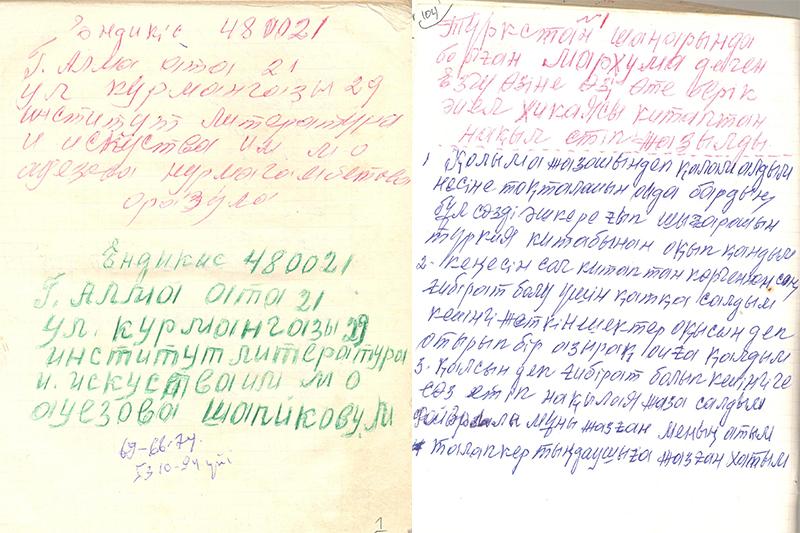 Ендикіс 480021
Г. Алма ата 21
ул курмангазы 29
институт литература
и искуства им м о
ауезова нурмагамбетова
оразула
Ендикис 480021
Г. Алма ата 21
ул. курмангазы 29
институт литература
и. искуства им м о
ауезова шапйкову.М
69-66-74.
53 10-94 үйі
1
104
Туркстан шаһарында
болған мархума деген
өзіне өзі өте берік
әйел хикаясы китаптан
нақыл етіп жазылды.
1 Қолыма жазайын деп қалам алдым
несіне тоқталайын ойда бардың
бұл сөзді әшкере ғып шығарайын
түркия китабынан оқып қандым
2. кеңесін сол китаптан көргеннен соң
ғибірат болу үшін қатқа салдым
кейінгі жеткіншектер оқысын деп
отырып бір азырақ ойға қалдым
3. қалсын деп ғибірат болып кейінгіге
сөз етіп нақылая жаза салдым
мұны жазған менің атым
талапкер тыңдаушыға жазған хатым